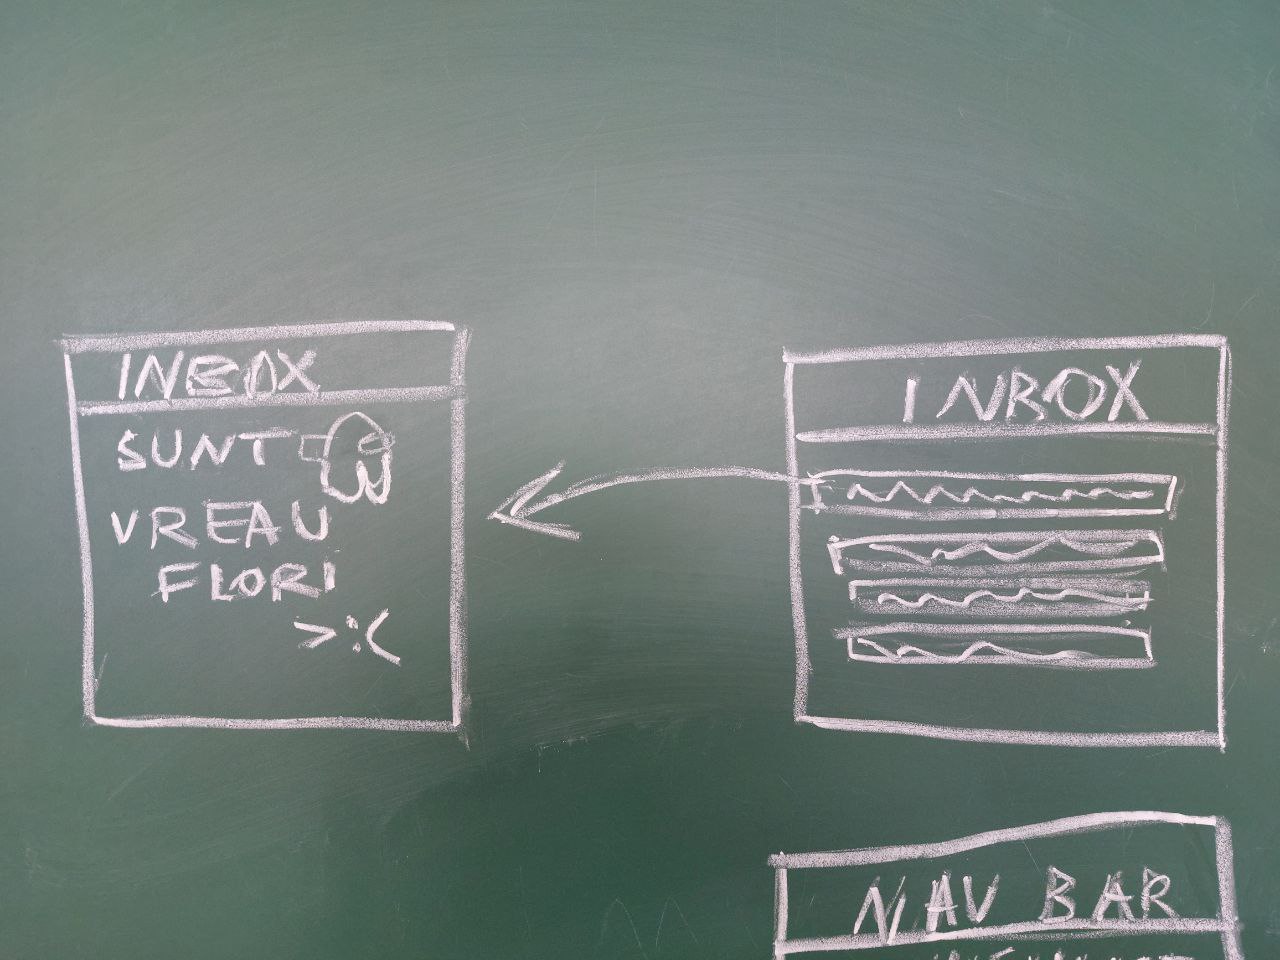 INBOX
SUNT
VREAU
FLORI
>:(
INBOX
NAV BAR